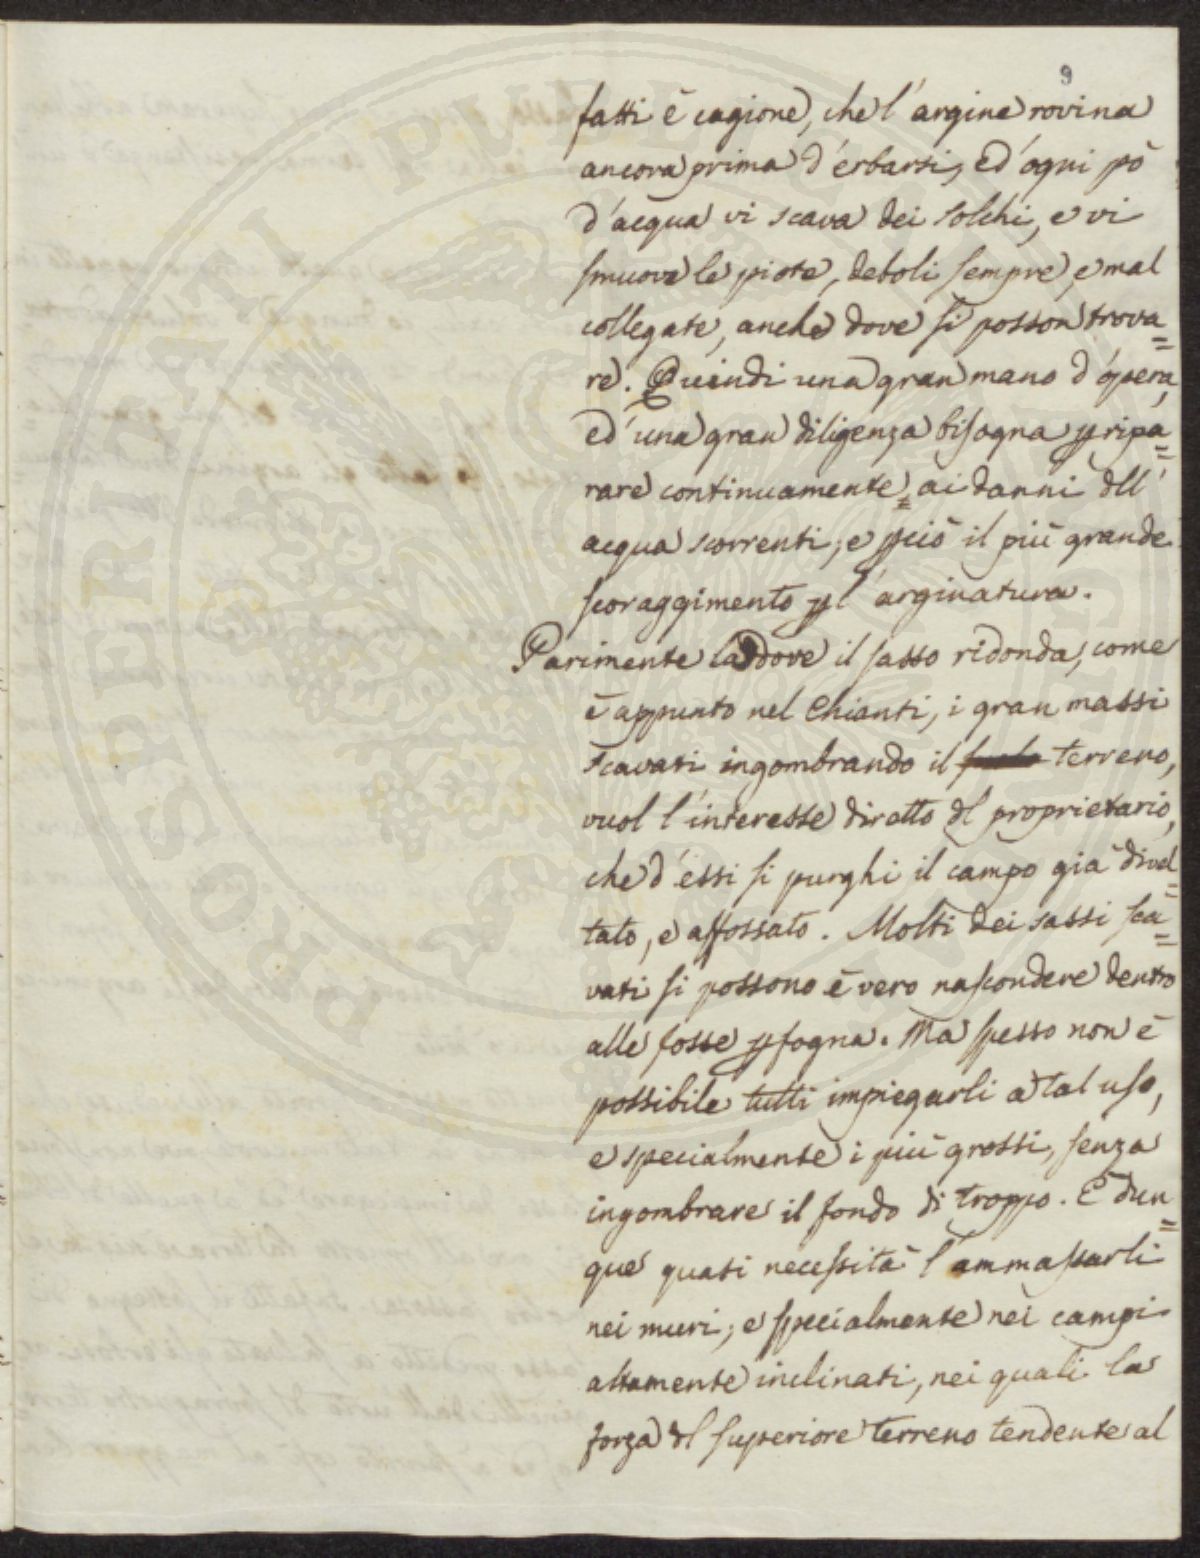 9
fatti è cagione, che l'argine rovina
ancora prima d'erbarsi, ed'ogni pò
d'acqua vi scava dei solchi, e vi
smuove le piote, deboli sempre, e mal
collegate, anche dove si posson trova=
re. Quindi una gran mano d'opera,
ed'una gran diligenza bisogna p ripa=
rare continuamente, ai danni dll'
acqua scorrenti; e pciò il più grande
scoraggimento pl'arginatura.
Parimente laddove il sasso ridonda, come
è appunto nel Chianti, i gran massi
scavati ingombrando il terreno,
vuol l'interesse diretto dl proprietario,
che d'essi si purghi il campo già divel=
tato, e affossato. Molti dei sassi sca=
vati si possono è vero nascondere dentro
alle fosse p fogna. Ma spesso non è
possibile tutti impiegarli a tal uso,
e specialmente i più grossi, senza
ingombrare il fondo di troppo. È dun=
que quasi necessità l'ammassarli
nei muri; e specialmente nei campi
altamente inclinati, nei quali la
forza dl superiore terreno tendente al
PROSPERITATI PUBLICAE